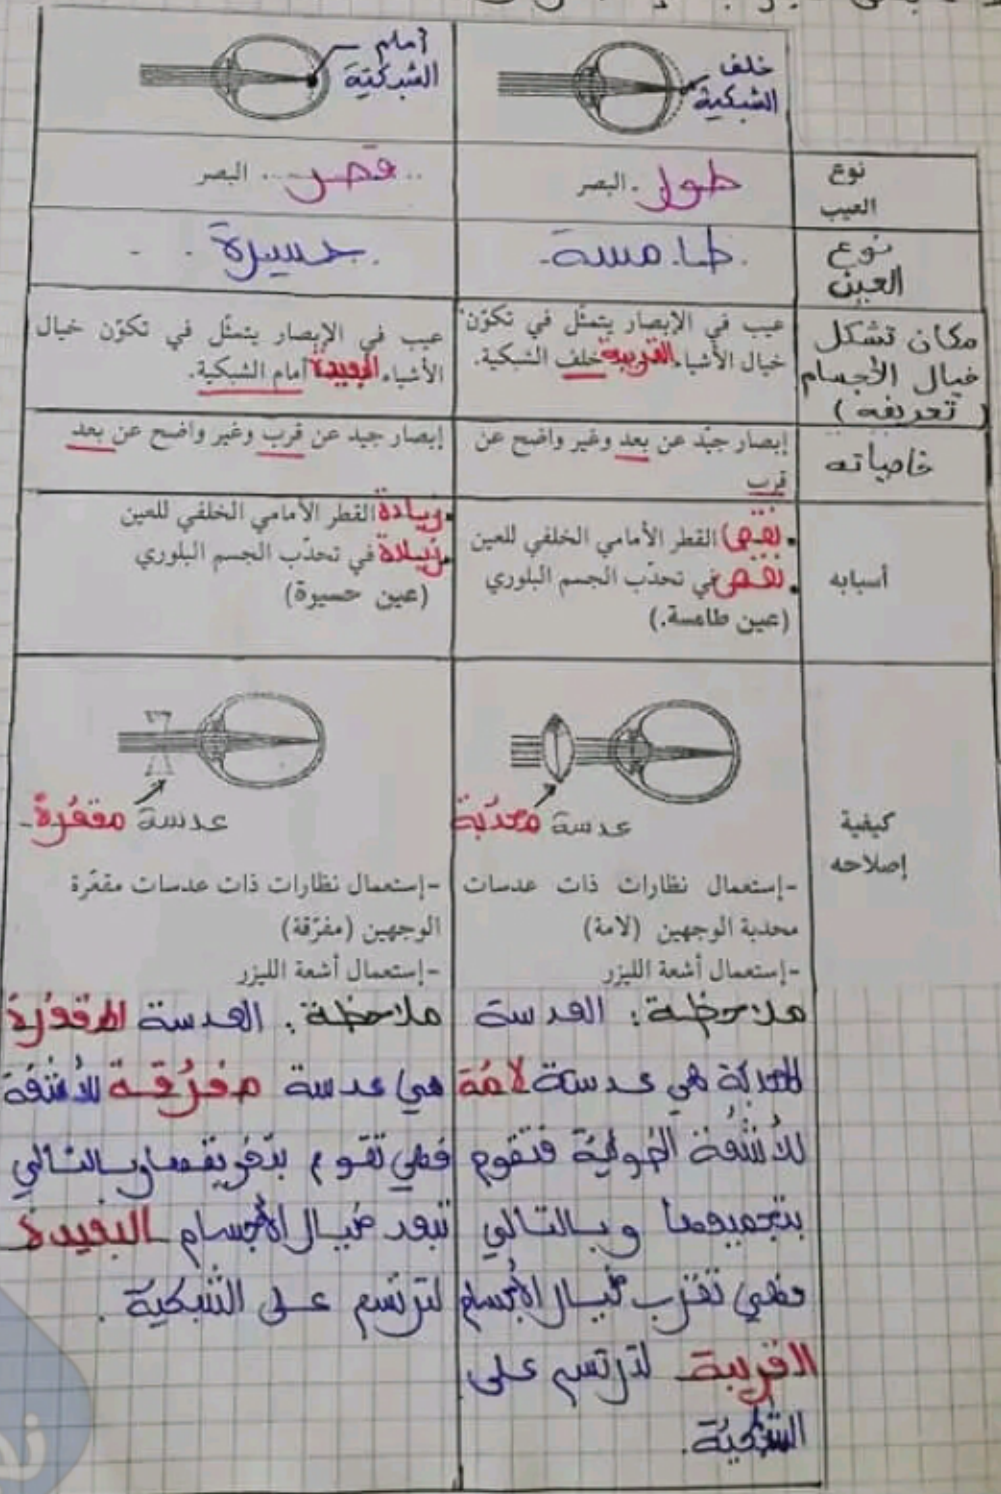 خلف
الشبكية
أمام
الشبكية
نوع
العيب
طول البصر
قصر ... البصر
نوع
العين
طامسة
حسيرة
مكان تشكل
خيال الأجسام
(تعريفه)
عيب في الإبصار يتمثّل في تكوّن
خيال الأشياء القريبة خلف الشبكية.
عيب في الإبصار يتمثّل في تكوّن خيال
الأشياء البعيدة أمام الشبكية.
خاصياته
إبصار جيّد عن بعد وغير واضح عن
قرب
إبصار جيد عن قرب وغير واضح عن بعد
أسبابه
• نقص القطر الأمامي الخلفي للعين
• نقص في تحدّب الجسم البلوري
(عين طامسة.)
• زيادة القطر الأمامي الخلفي للعين
• زيادة في تحدّب الجسم البلوري
(عين حسيرة)
كيفية
إصلاحه
عدسة محدّبة
-إستعمال نظارات ذات عدسات
محدبة الوجهين (لامة)
-إستعمال أشعة الليزر
ملاحظة: العدسة
المحدبة هي عدسة لامّة
للأشعّة الضوئية فتقوم
بتجميعها وبالتالي
فهي تقرّب خيال الأجسام
القريبة لترتسم على
الشبكيّة.
عدسة مقعّرة
-إستعمال نظارات ذات عدسات مقعّرة
الوجهين (مفرّقة)
-إستعمال أشعة الليزر
ملاحظة: العدسة المقعّرة
هي عدسة مفرّقة للأشعّة
فهي تقوم بتفريقها وبالتالي
تبعد خيال الأجسام البعيدة
لترتسم على الشبكية.